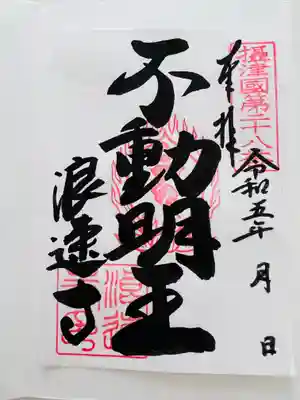 奉拝
令和五年 月 日
摂津國第二十八
不動明王
浪速寺